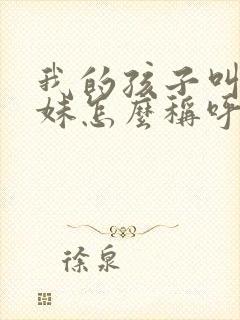 我的孩子叫
妹怎麼稱呼
徐泉